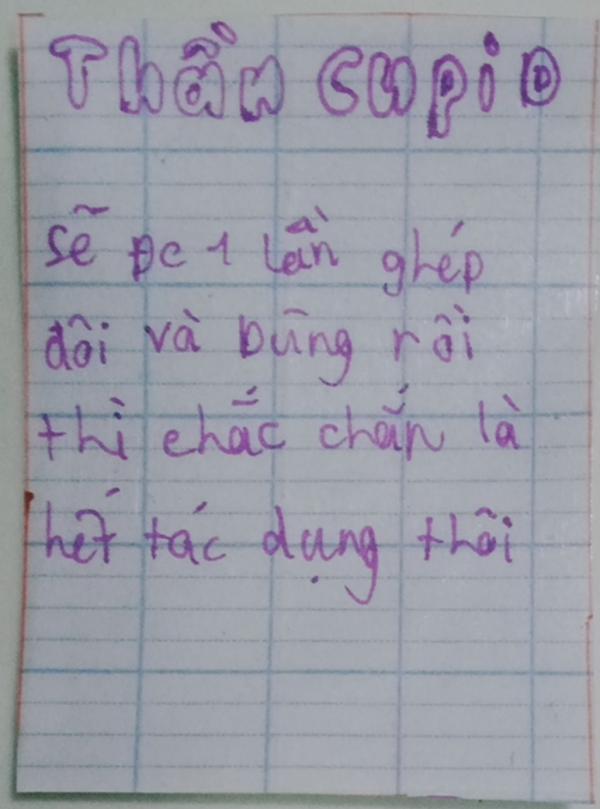 Thần cupiD
sẽ Đc 1 lần ghép
đôi và Dùng rồi
thì chắc chắn là
hết tác dụng thôi